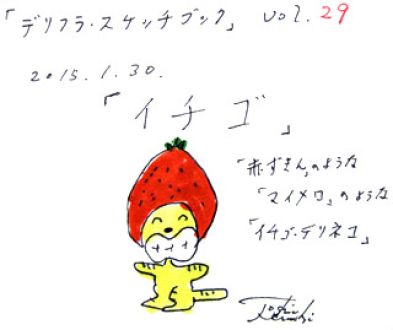 「デリフラ・スケッチブック」 vol.29
2015.1.30.
「イチゴ」
「赤ずきん」のような
「マイメロ」のような
「イチゴ・デリネコ」